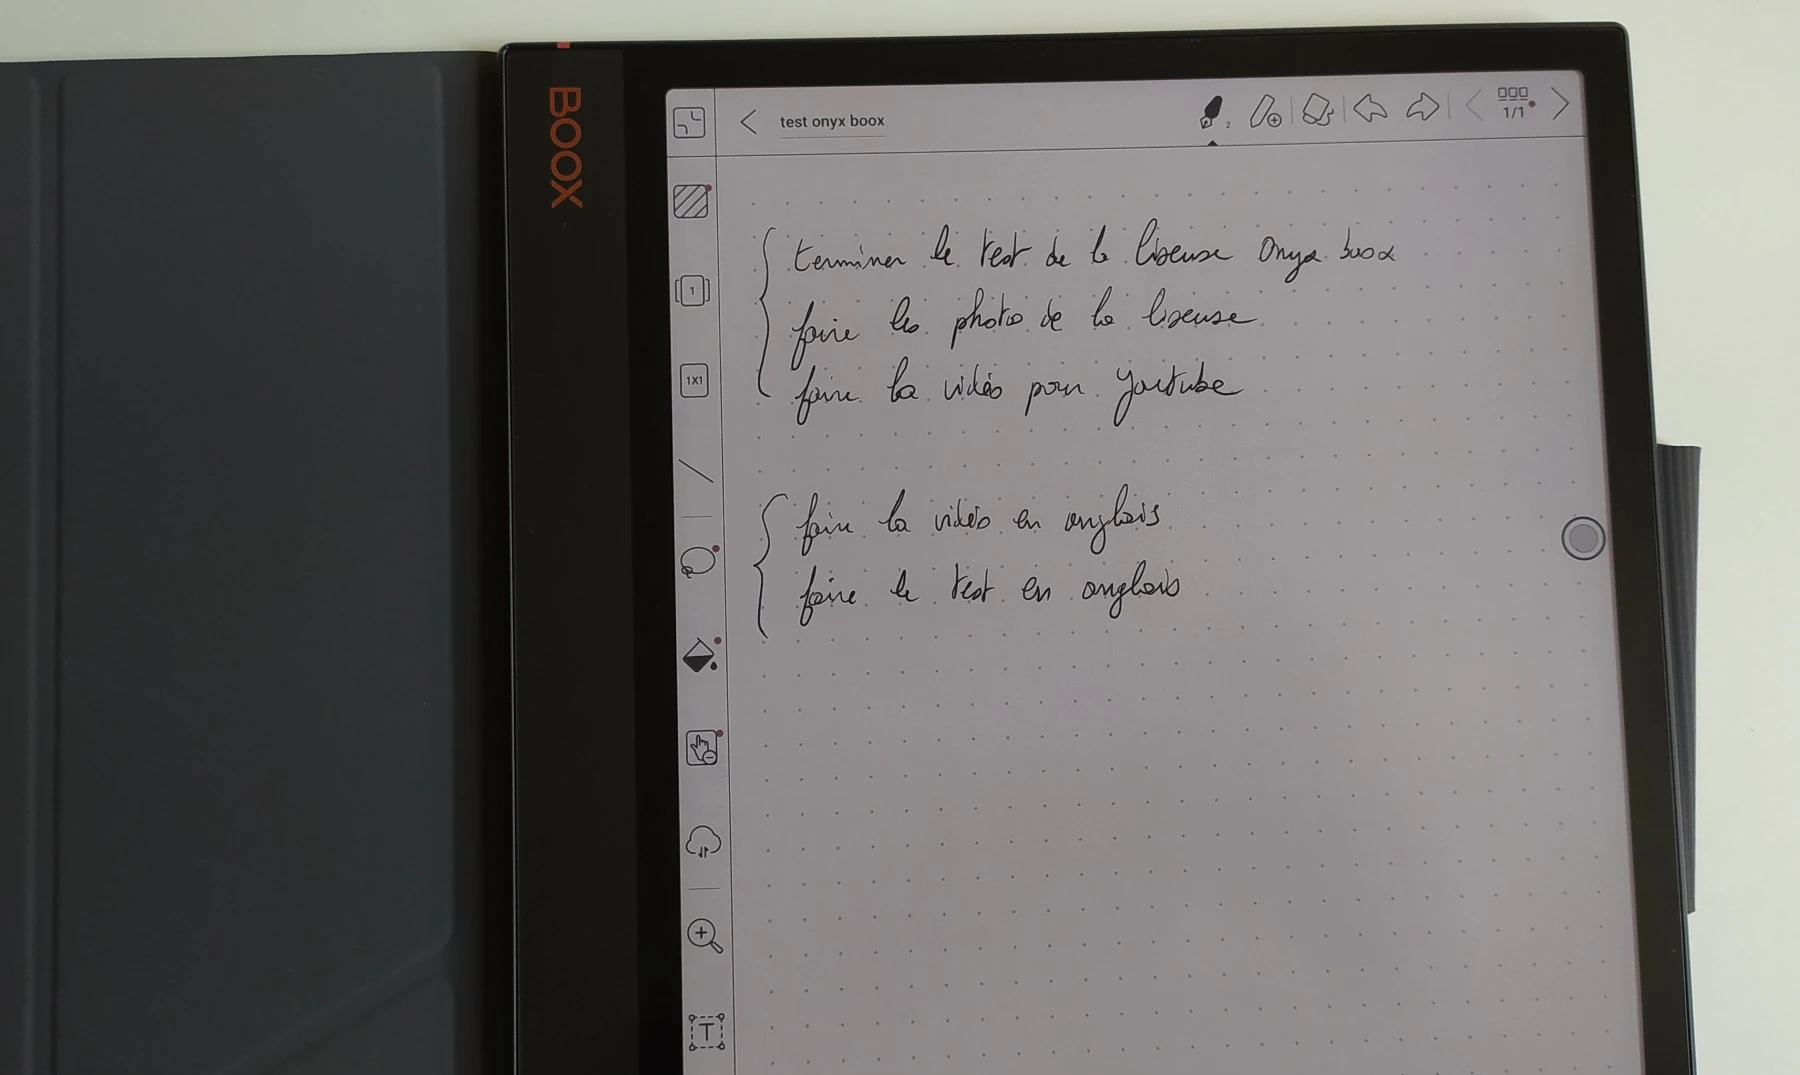 BOOX
test onyx boox
2
1/1
1
1X1
T
terminer le test de la liseuse Onyx boox
faire les photos de la liseuse
faire la vidéo pour Youtube
faire la vidéo en anglais
faire le test en anglais